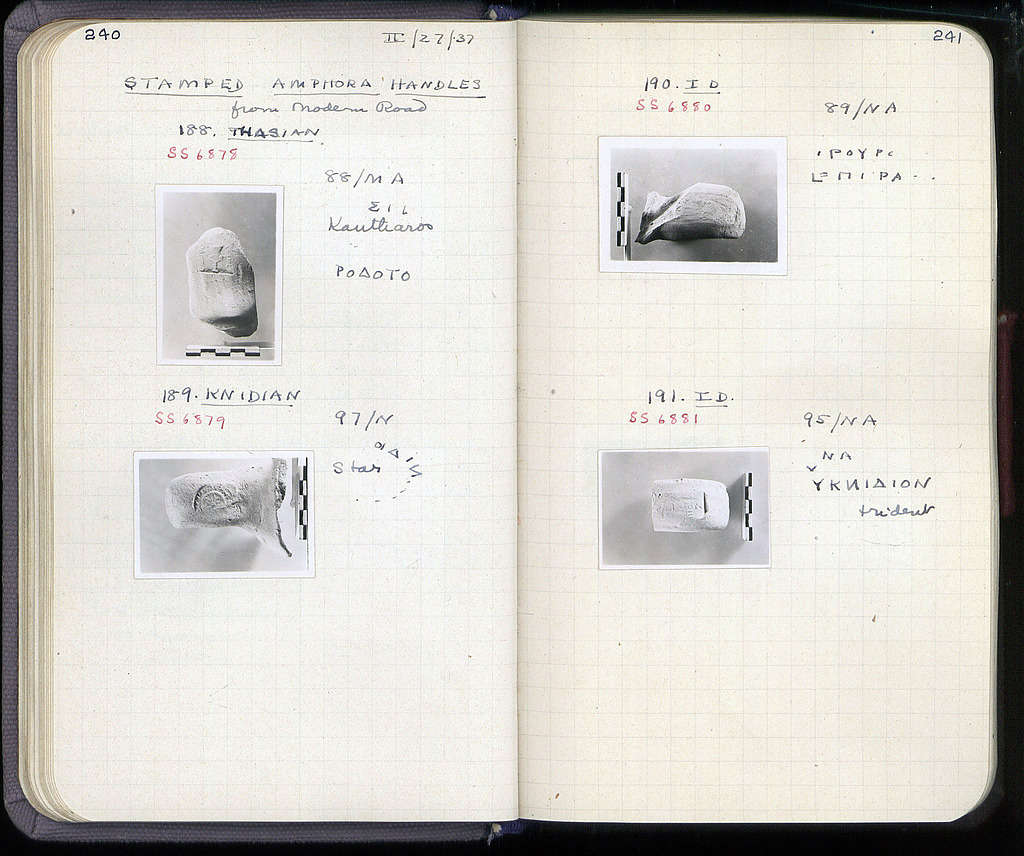 240
II/27/37
STAMPED AMPHORA HANDLES
from Modern Road
188. THASIAN.
SS 6878
88/MA
ΣΙ
Kantharos
ΡΟΔΟΤΟ
189. KNIDIAN
SS 6879
97/N
Star
241
190. ID
SS 6880
89/NA
ΡΟΥΡ
ΕΠΙΡΑ
191. ID.
SS 6881
95/NA
ΝΑ
ΥΚΝΙΔΙΟΝ
trident